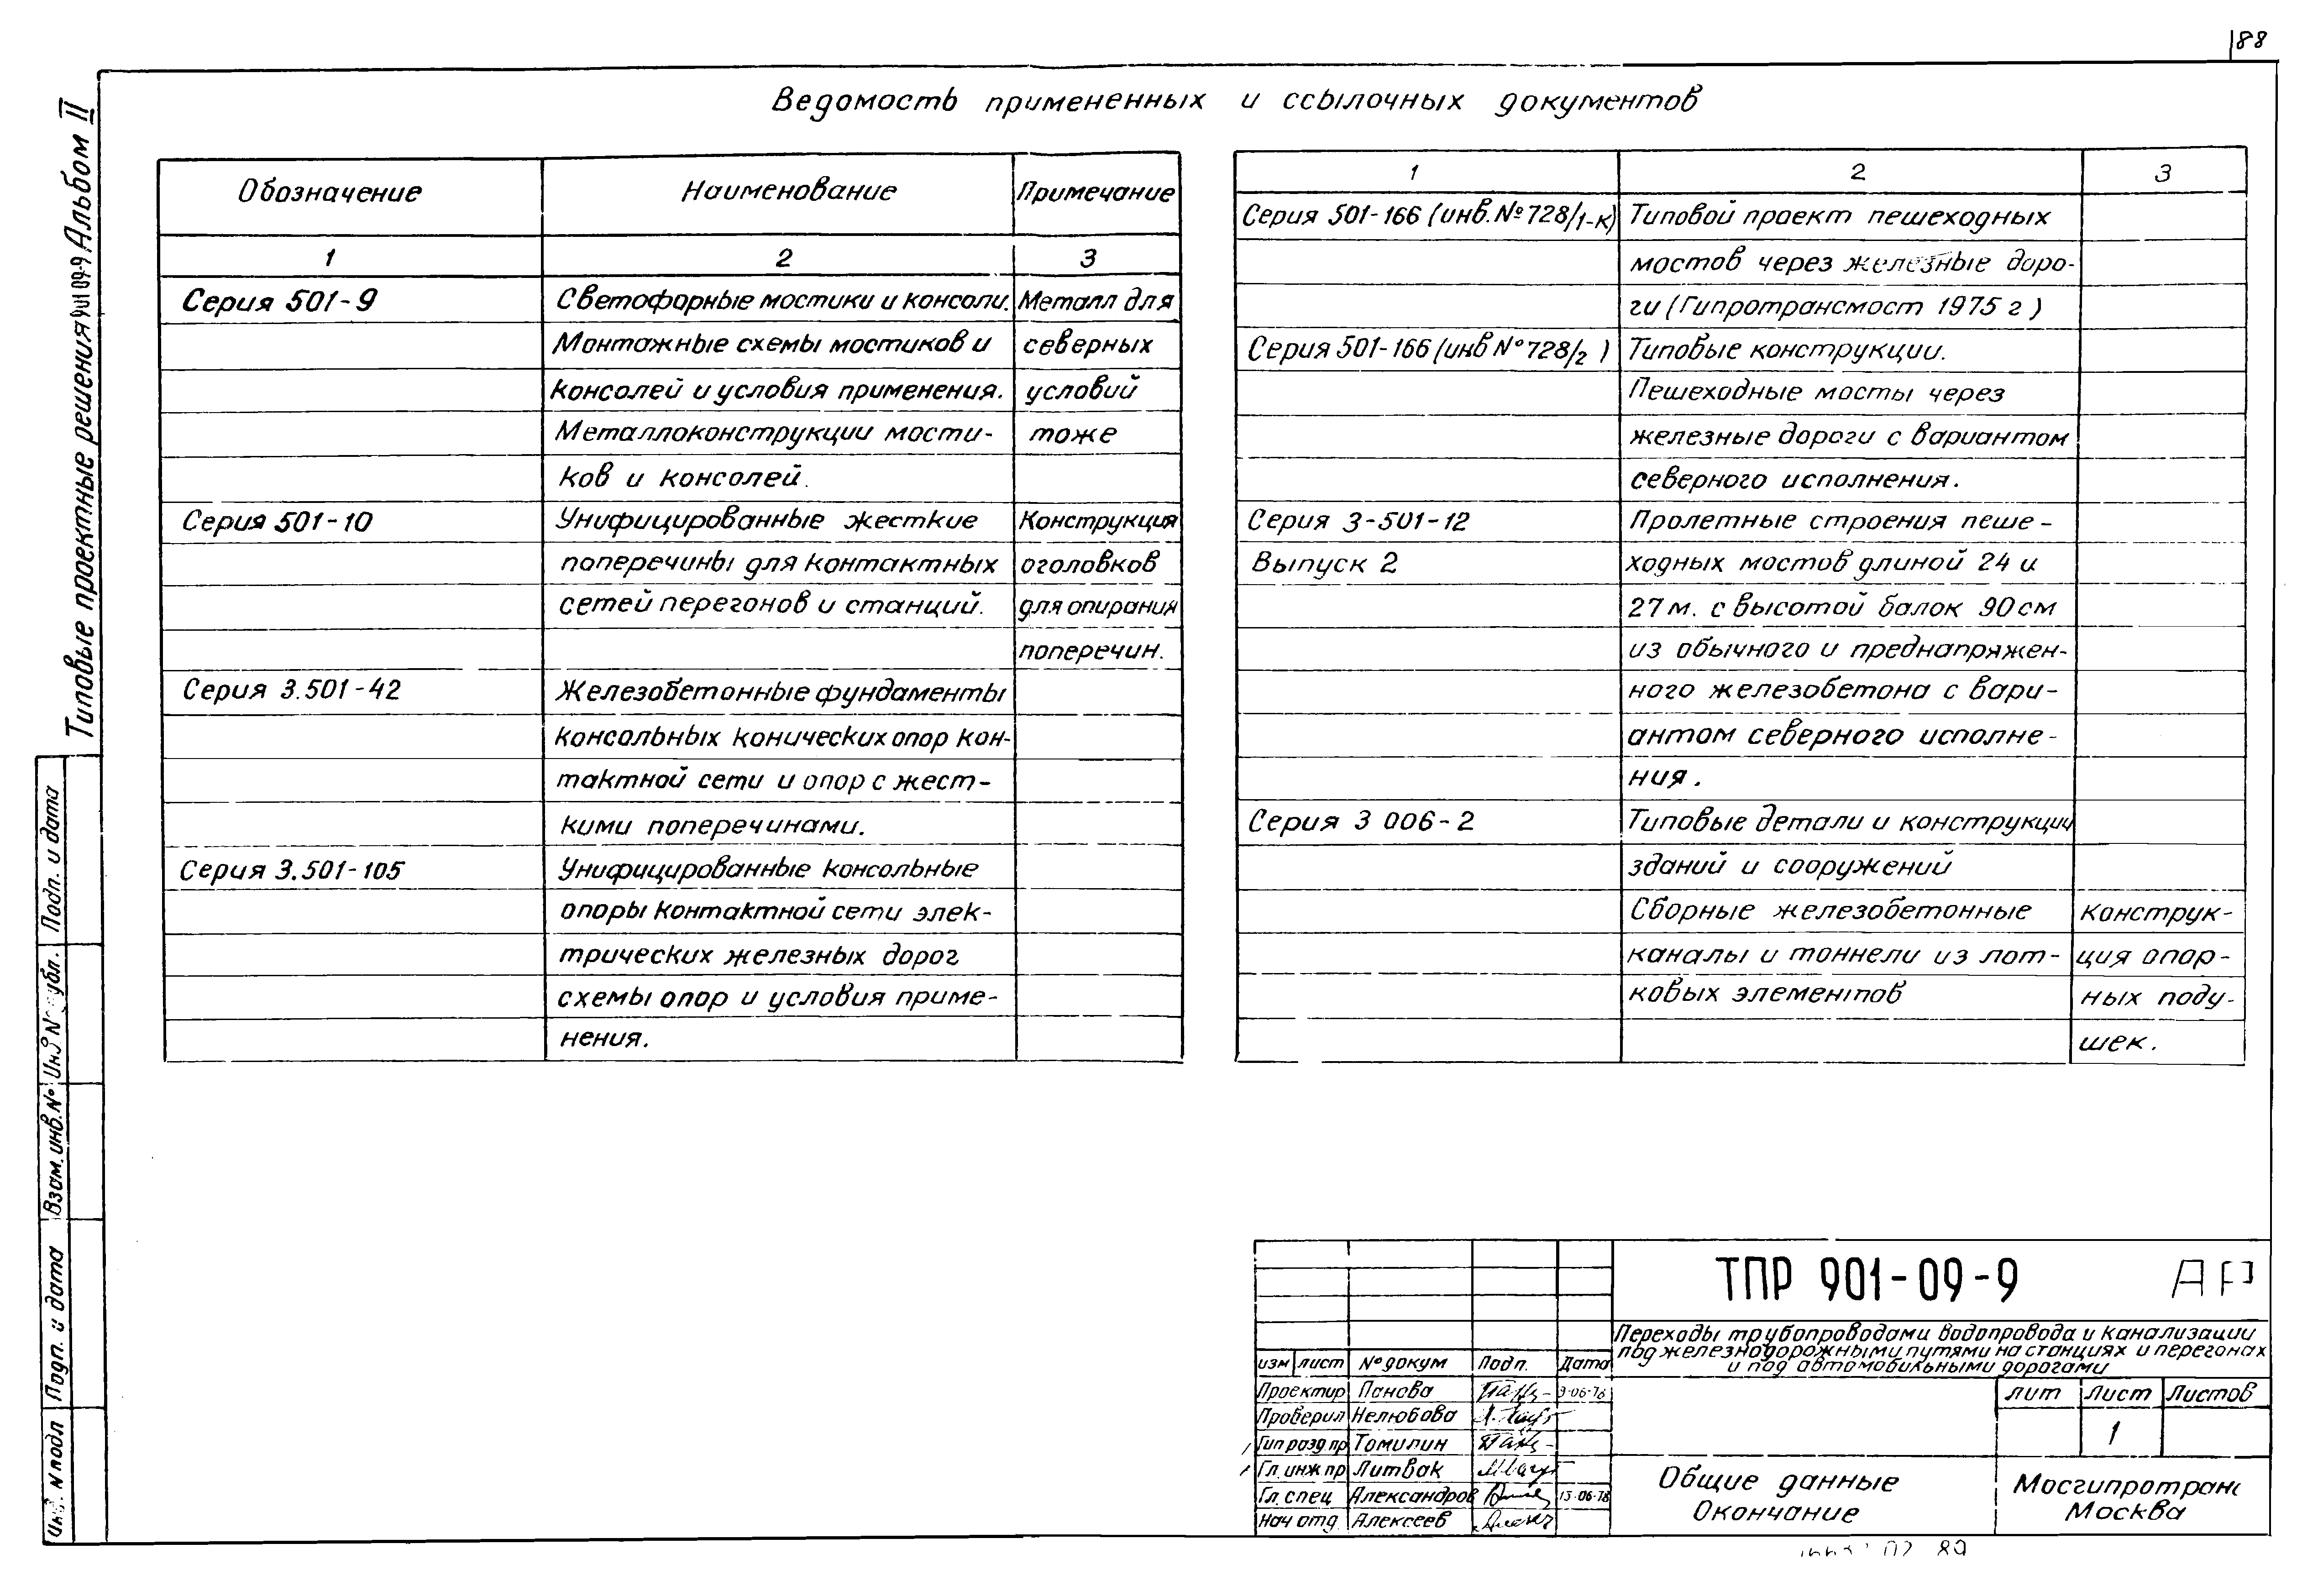 88
Ведомость примененных и ссылочных документов
Типовые проектные решения 901-09-9 Альбом II
Обозначение Наименование Примечание
1 2 3
Серия 501-9 Светофорные мостики и консоли. Металл для
Монтажные схемы мостиков и северных
консолей и условия применения. условий
Металлоконструкции мости- тоже
ков и консолей.
Серия 501-10 Унифицированные жесткие Конструкция
поперечины для контактных оголовков
сетей перегонов и станций. для опирания
поперечин.
Серия 3.501-42 Железобетонные фундаменты
консольных конических опор кон-
тактной сети и опор с жест-
кими поперечинами.
Серия 3.501-105 Унифицированные консольные
опоры контактной сети элек-
трических железных дорог
схемы опор и условия приме-
нения.
1 2 3
Серия 501-166 (инв.№728/1-к) Типовой проект пешеходных
мостов через железные доро-
ги (Гипротрансмост 1975 г)
Серия 501-166 (инв №728/2) Типовые конструкции.
Пешеходные мосты через
железные дороги с вариантом
северного исполнения.
Серия 3-501-12 Пролетные строения пеше-
Выпуск 2 ходных мостов длиной 24 и
27м. с высотой балок 90см
из обычного и преднапряжен-
ного железобетона с вари-
антом северного исполне-
ния.
Серия 3 006-2 Типовые детали и конструкции
зданий и сооружений
Сборные железобетонные Конструк-
каналы и тоннели из лот- ция опор-
ковых элементов ных поду-
шек.
Инв. N подл Подп. и дата Взам. инв. № Инв N дубл. Подп. и дата
ТПР 901-09-9 АР
Переходы трубопроводами водопровода и канализации
под железнодорожными путями на станциях и перегонах
и под автомобильными дорогами
изм лист № докум Подп. Дата
Проектир Панова 9-06-78
Проверил Нелюбова
Гип разд пр Томилин
Гл. инж пр Литвак
Гл. спец Александров 13-06-78
Нач отд Алексеев
лит Лист Листов
1
Общие данные
Окончание
Мосгипротранс
Москва
02 89